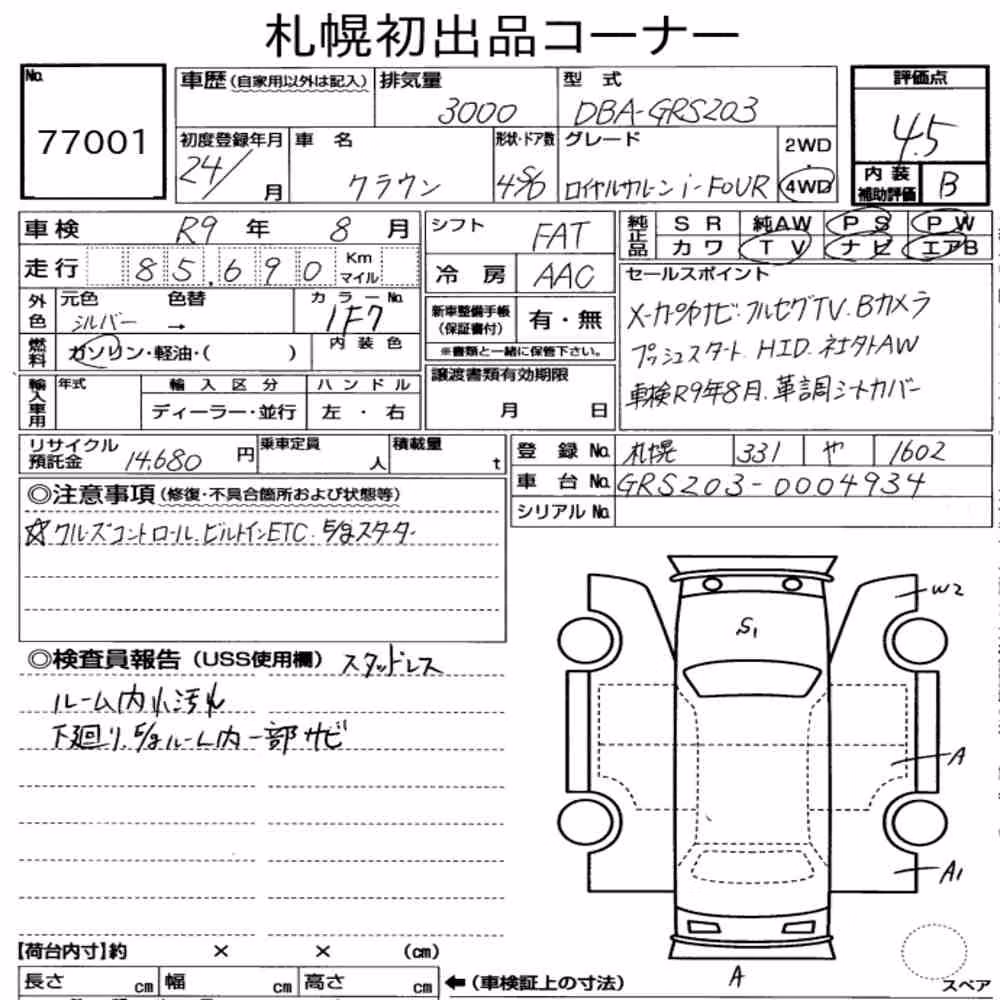 札幌初出品コーナー
No. 77001
車歴(自家用以外は記入) 排気量 3000 型式 DBA-GRS203
初度登録年月 24/ 月 車名 クラウン 形状・ドア数 4SD グレード ロイヤルサルーン i-FOUR 2WD 4WD
評価点 4.5
内装補助評価 B
車検 R9 年 8 月
走行 85,690 Km マイル
外色 元色 シルバー 色替 → カラーNo. 1F7
燃料 ガソリン・軽油・( ) 内装色
輸入車用 年式 輸入区分 ディーラー・並行 ハンドル 左・右
シフト FAT
冷房 AAC
新車整備手帳(保証書付) 有・無
※書類と一緒に保管下さい。
譲渡書類有効期限 月 日
純正品 SR 純AW PS PW
カワ TV ナビ エアB
セールスポイント
メーカーナビ・フルセグTV.Bカメラ
プッシュスタート HID. 社外AW
車検R9年8月.革調シートカバー
リサイクル預託金 14,680 円 乗車定員 人 積載量 t
登録No. 札幌 331 や 1602
車台No. GRS203-0004934
シリアルNo.
◎注意事項(修復・不具合箇所および状態等)
☆クルーズコントロール.ビルトインETC.E/gスターター
◎検査員報告(USS使用欄) スタッドレス
ルーム内小汚れ
下廻り.E/gルーム内一部サビ
S1
W2
A
A1
A
スペア
【荷台内寸】約 × × (cm)
長さ cm 幅 cm 高さ cm ←(車検証上の寸法)